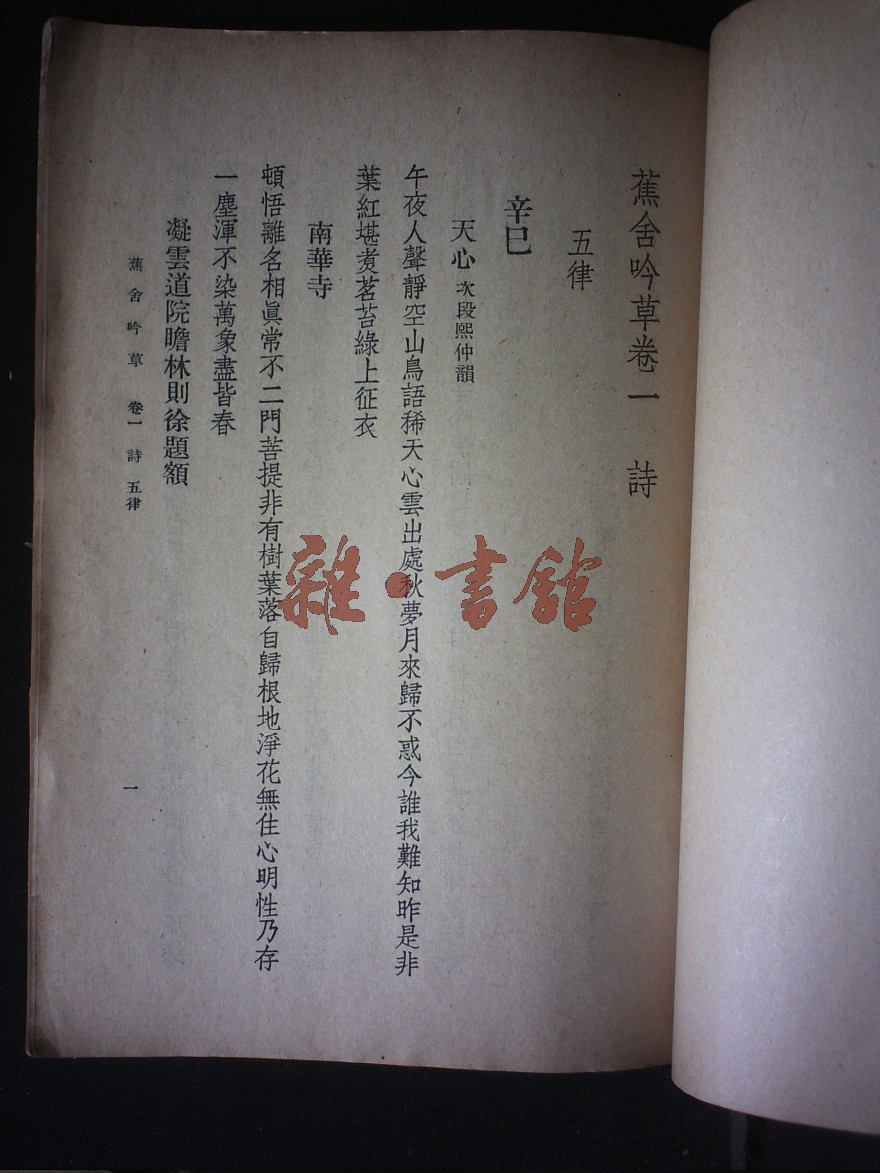 蕉舍吟草卷一 詩
五律
辛巳
天心 次段熙仲韻
午夜人聲靜空山鳥語稀天心雲出處秋夢月來歸不惑今誰我難知昨是非
葉紅堪煑茗苔綠上征衣
南華寺
頓悟離名相眞常不二門菩提非有樹葉落自歸根地淨花無住心明性乃存
一塵渾不染萬象盡皆春
凝雲道院瞻林則徐題額
蕉舍吟草 卷一 詩 五律 一
雜·書館